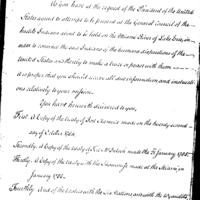 As you have at the request of the President of the United
States agreed to attempt to be present at the General Council of the
hostile Indians about to be held on the Miami River of Lake Erie, in
order to convince the said Indians of the humane dispositions of the
United States and thereby to make a peace or pacts with them
it is proper that you should possess all due information and instructions
relatively to your mission.
You have herewith delivered to you,
First. A Copy of the treaty of Fort Stanwix made on the twenty second
day of October 1784.
Secondly. A Copy of the treaty of Fort McIntosh made the 21 January 1785.
Thirdly. A Copy of treaty with the Shawanese made at the Miami in
January 1786.
Fourthly. And of the treaties with the Six Nations, and with the Wyandots,